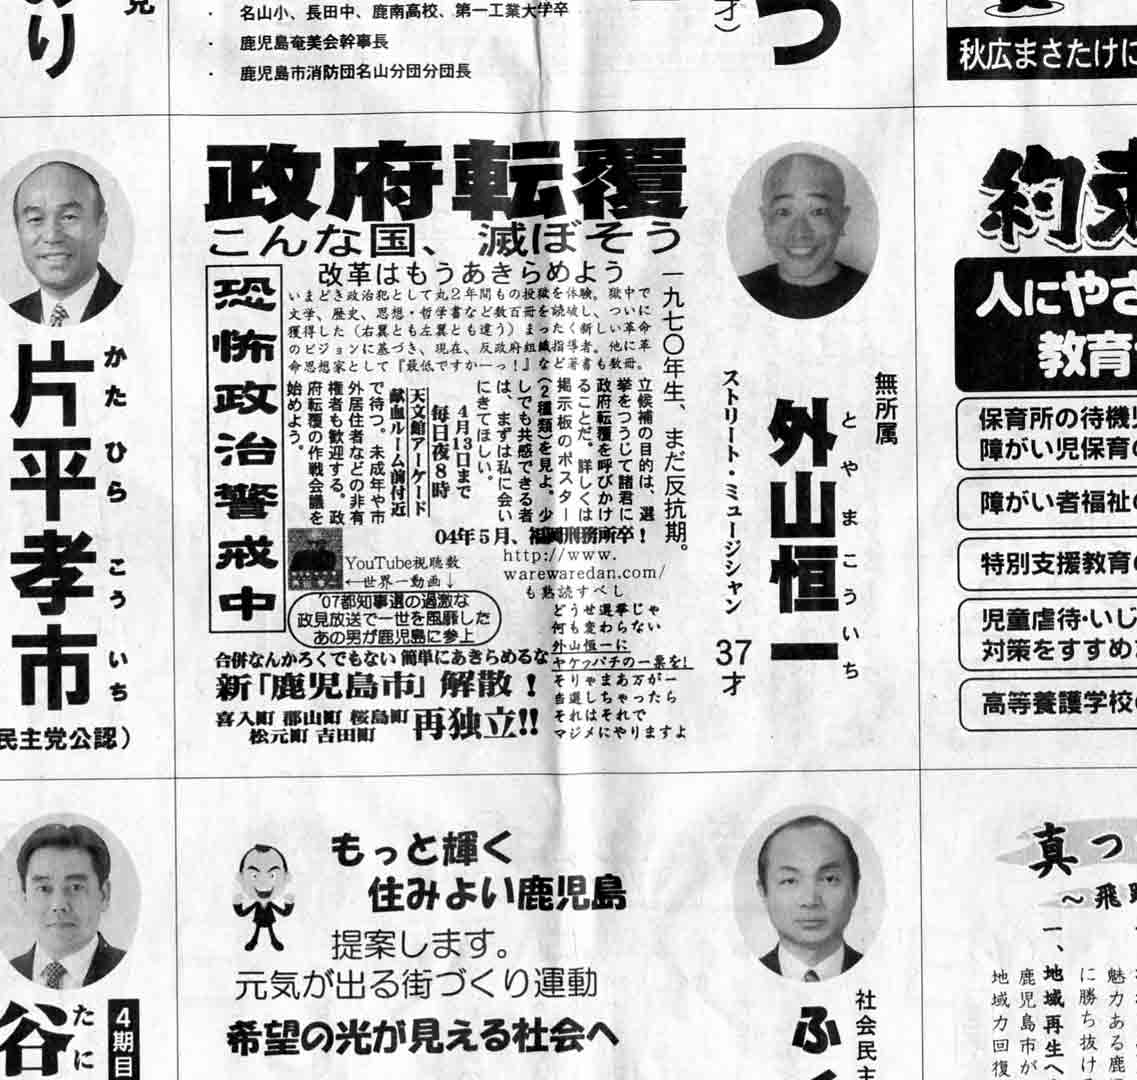 見
り
名山小、長田中、鹿南高校、第一工業大学卒
鹿児島奄美会幹事長
鹿児島市消防団名山分団分団長
才）
つ
秋広まさたけに
かたひら こういち
片平孝市
民主党公認）
政府転覆
こんな国、滅ぼそう
改革はもうあきらめよう
恐怖政治警戒中
一九七〇年生、まだ反抗期。
いまどき政治犯として丸2年間もの投獄を体験。獄中で
文学、歴史、思想・哲学書など数百冊を読破し、ついに
獲得した（右翼とも左翼とも違う）まったく新しい革命
のビジョンに基づき、現在、反政府組織指導者。他に革
命思想家として『最低ですかーっ！』など著書も数冊。
立候補の目的は、選
挙をつうじて諸君に
政府転覆を呼びかけ
ることだ。詳しくは
掲示板のポスター
（2種類）を見よ。少
しでも共感できる者
は、まずは私に会い
にきてほしい。
4月13日まで
毎日夜8時
天文館アーケード
献血ルーム前付近
で待つ。未成年や市
外居住者などの非有
権者も歓迎する。政
府転覆の作戦会議を
始めよう。
04年5月、福岡刑務所卒！
http://www.
warewaredan.com/
も熟読すべし
YouTube視聴数
←世界一動画↓
'07都知事選の過激な
政見放送で一世を風靡した
あの男が鹿児島に参上
どうせ選挙じゃ
何も変わらない
外山恒一に
ヤケッパチの一票を！
そりゃまあ万が一
当選しちゃったら
それはそれで
マジメにやりますよ
合併なんかろくでもない 簡単にあきらめるな
新「鹿児島市」解散！
喜入町 郡山町 桜島町
松元町 吉田町
再独立!!
無所属
とやまこういち
外山恒一
ストリート・ミュージシャン
37才
約束
人にやさ
教育
保育所の待機
障がい児保育の
障がい者福祉の
特別支援教育の
児童虐待・いじ
対策をすすめ
高等養護学校の
たに
谷
4期目
もっと輝く
住みよい鹿児島
提案します。
元気が出る街づくり運動
希望の光が見える社会へ
社会民主
ふ
真っ
～飛
一、地域再生へ
魅力ある鹿
に勝ち抜け
鹿児島市が
地域力回復